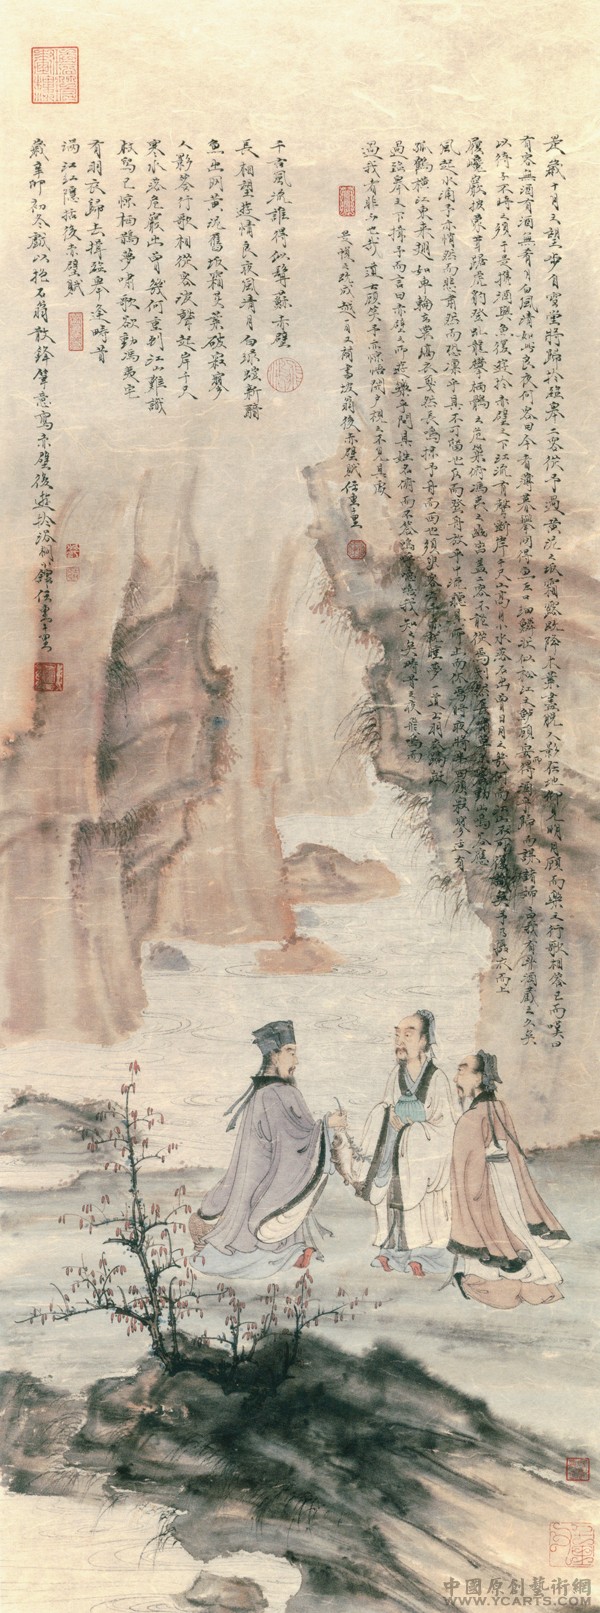 是歲十月之望步自雪堂將歸於臨皋二客從予過黃泥之坂霜露既降木葉盡脫人影在地仰見明月顧而樂之行歌相答已而嘆曰
有客無酒有酒無肴月白風清如此良夜何客曰今者薄暮舉網得魚巨口細鱗狀似松江之鱸顧安所得酒乎歸而謀諸婦婦曰我有斗酒藏之久矣
以待子不時之須於是攜酒與魚復遊於赤壁之下江流有聲斷岸千尺山高月小水落石出曾日月之幾何而江山不可復識矣予乃攝衣而上
履巉巖披蒙茸踞虎豹登虬龍攀棲鶻之危巢俯馮夷之幽宮蓋二客不能從焉劃然長嘯草木震動山鳴谷應
風起水涌予亦悄然而悲肅然而恐凜乎其不可留也反而登舟放乎中流聽其所止而休焉時夜將半四顧寂寥適有
孤鶴橫江東來翅如車輪玄裳縞衣戛然長鳴掠予舟而西也須臾客去予亦就睡夢一道士羽衣蹁躚
過臨皋之下揖予而言曰赤壁之遊樂乎問其姓名俯而不答嗚呼噫嘻我知之矣疇昔之夜飛鳴而
過我者非子也耶道士顧笑予亦驚悟開戶視之不見其處
越一月又書坡翁後赤壁賦任重千里
千古風流誰得似髯蘇赤壁
長相望遊情良夜風清月白瓊瑤新醅
魚出網黃泥舊坂霜葉破寂寥
人影答行歌相從客波聲起岸千尺
寒水落危巖出曾幾何重到江山難識
已驚棲鶻夢嘯歌欲動馮夷宅
看羽衣歸去揖臨皋逢疇昔
滿江紅隱括後赤壁賦
歲辛卯初冬戲以抱石翁散鋒筆意寫赤壁後遊於任重千里
中國原創藝術網
WWW.YCARTS.COM